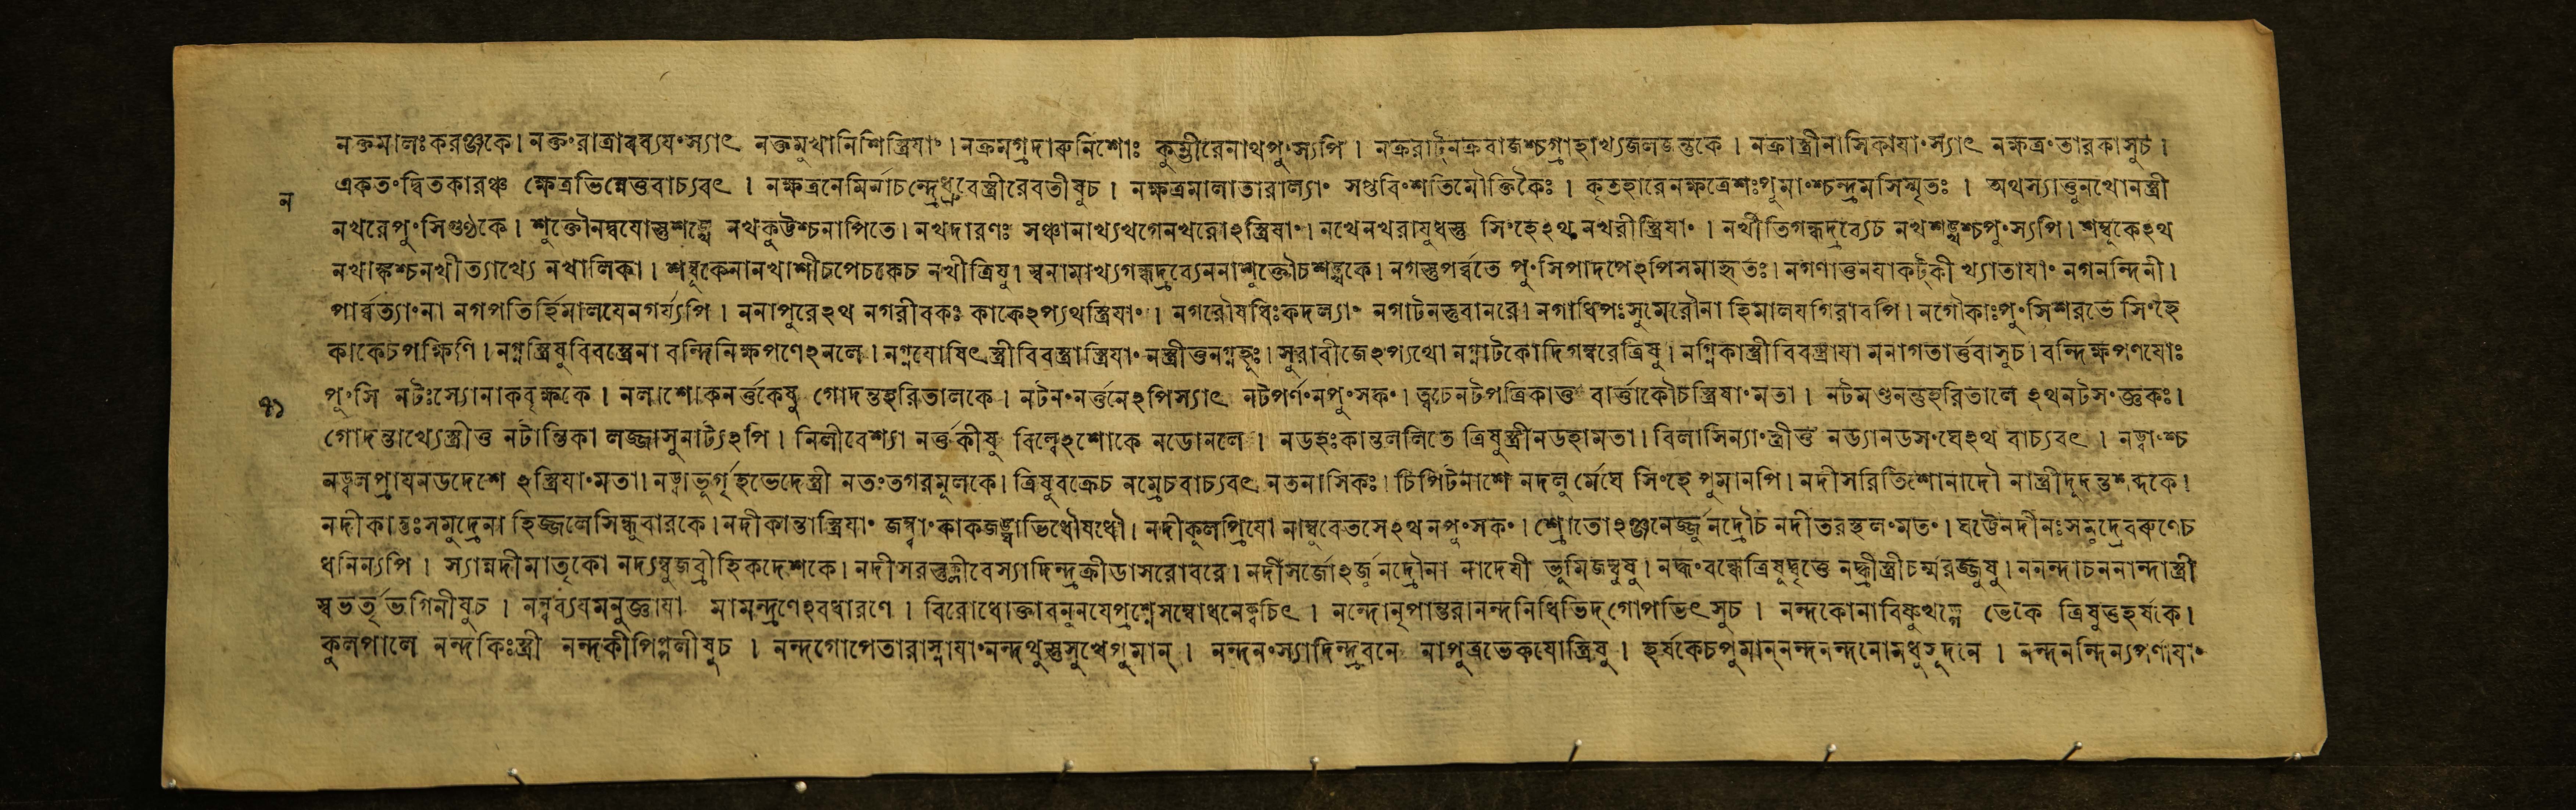 নক্তমালঃকরঞ্জকে। নক্তং রাত্রাবব্যযংস্যাৎ নক্তমুখানিশিস্ত্রিযাং। নক্রমগ্রদারুনিশোঃ কুম্ভীরেনাথপুংস্যপি। নক্ররাট্নক্ররাজশ্চগ্রাহাখ্যজলজন্তুকে। নক্রাস্ত্রীনাসিকাযাংস্যাৎ নক্ষত্রংতারকাসুচ।
ন একতংদ্বিতকারঞ্চ ক্ষেত্রভিন্নেত্তবাচ্যবৎ। নক্ষত্রনেমির্নাচন্দ্রেধ্রুবেস্ত্রীরেবতীষুচ। নক্ষত্রমালাতারাল্যাং সপ্তবিংশতিমৌক্তিকৈঃ। কৃতহারেনক্ষত্রেশঃপুমাংশ্চন্দ্রমসিস্মৃতঃ। অথস্যাত্তুনখোনস্ত্রী
নখরেপুংসিগুণ্ঠকে। শুক্তৌনদ্বযোস্তুশঙ্খে নখকুট্টশ্চনাপিতে। নখদারণঃ সঞ্চানাখ্যখগেনখরোঽস্ত্রিযাং। নখেনখরাযুধস্তু সিংহেঽথ নখরীস্ত্রিযাং। নখীতিগন্ধদ্রব্যেচ নখশঙ্খশ্চপুংস্যপি। শম্বুকেঽথ
নখাঙ্কশ্চনখীত্যাখ্যে নখালিকা। শম্বূকেনানখাশীচপেচকেচ নখীত্রিষু। স্বনামাখ্যগন্ধদ্রব্যেননাশুক্তৌচশঙ্খকে। নগস্তুপর্ব্বতে পুংসিপাদপেঽপিসমাহৃতঃ। নগণাত্তুনযাকট্কী খ্যাতাযাং নগনন্দিনী।
পার্ব্বত্যাংনা নগপতির্হিমালযেনগর্য্যপি। ননাপুরেঽথ নগরীবকঃ কাকেঽপ্যথস্ত্রিযাং। নগরৌষধিঃকদল্যাং নগাটনস্তুবানরে। নগাধিপঃসুমেরৌনা হিমালযগিরাবপি। নগৌকাঃপুংসিশরভে সিংহে
কাকেচপক্ষিণি। নগ্নস্ত্রিষুবিবস্ত্রেনা বন্দিনিক্ষপণেঽনলে। নগ্নযোষিৎস্ত্রীবিবস্ত্রাস্ত্রিযাং নস্ত্রীত্তুনগ্নহূঃ। সুরাবীজেঽপ্যথো নগ্নাটকোদিগম্বরেত্রিষু। নগ্নিকাস্ত্রীবিবস্ত্রাযা মনাগতার্ত্তবাসুচ। বন্দিক্ষপণযোঃ
৭১ পুংসি নটঃস্যোনাকবৃক্ষকে। নলাশোকনর্ত্তকেষু গোদন্তহরিতালকে। নটনংনর্ত্তনেঽপিস্যাৎ নটপর্ণংনপুংসকং। ত্বচেনটপত্রিকাত্তু বার্ত্তাকৌচস্ত্রিযাংমতা। নটমণ্ডনন্তুহরিতালে ঽথনটসংজ্ঞকঃ।
গোদন্তাখ্যেস্ত্রীত্ত নটান্তিকা লজ্জাসুনাট্যঽপি। নিলীবেশ্যা নর্ত্তকীষু বিল্বেঽশোকে নডোনলে। নডহঃকান্তললিতে ত্রিষুস্ত্রীনডহামতা। বিলাসিন্যাংস্ত্রীত্তু নড্যানডসংঘেঽথ বাচ্যবৎ। নড্বাংশ্চ
নড্বলপ্রাযনডদেশে ঽস্ত্রিযাংমতা। নড্বাভূর্গৃহভেদেস্ত্রী নতংতগরমূলকে। ত্রিষুবক্রেচ নম্রেচবাচ্যবৎ নতনাসিকঃ। চিপিটনাশে নদলু র্মেঘে সিংহে পুমানপি। নদীসরিতিশোনাদৌ নাস্ত্রীদূদন্তশব্দকে।
নদীকান্তঃসমুদ্রেনা হিজ্জলেসিন্ধুবারকে। নদীকান্তাস্ত্রিযাং জম্ব্বাংকাকজঙ্ঘাভিধৌষধৌ। নদীকূলপ্রিযো নাম্বুবেতসেঽথ নপুংসকং। শ্রোতোঽঞ্জনেঽর্জ্জুনদ্রৌচ নদীতরস্থলংমতং। ঘট্টেনদীনঃসমুদ্রেবরুণেচ
ধনিন্যপি। স্যান্নদীমাতৃকো নদ্যম্বুজব্রীহিকদেশকে। নদীসরস্তুস্ত্রীবেস্যাদিন্দ্রক্রীডাসরোবরে। নদীসর্জোঽর্জুনদ্রৌনা নাদেযী ভূমিজম্বুষু। নদ্ধংবন্ধেত্রিষুদ্বৃত্তে নদ্ধ্রীস্ত্রীচর্ম্মরজ্জুষু। ননন্দাচননান্দাস্ত্রী
স্বভর্তৃভগিনীষুচ। নন্বব্যযমনুজ্ঞাযা মামন্ত্রণেঽবধারণে। বিরোধোক্তাবনুনযেপ্রশ্নেসম্বোধনেক্বচিৎ। নন্দোনৃপান্তরানন্দনিধিভিদ্গোপভিৎসুচ। নন্দকোনাবিষ্ণুখড্গে ভেকে ত্রিষুত্তহর্ষকে।
কুলপালে নন্দকিঃস্ত্রী নন্দকীপিপ্পলীষুচ। নন্দগোপেতারাস্নাযাংনন্দথুস্তুসুখেপুমান্। নন্দনংস্যাদিন্দ্রবনে নাপুত্রভেকযোস্ত্রিষু। হর্ষকেচপুমান্নন্দনন্দনোমধুসূদনে। নন্দনন্দিন্যপর্ণাযাং